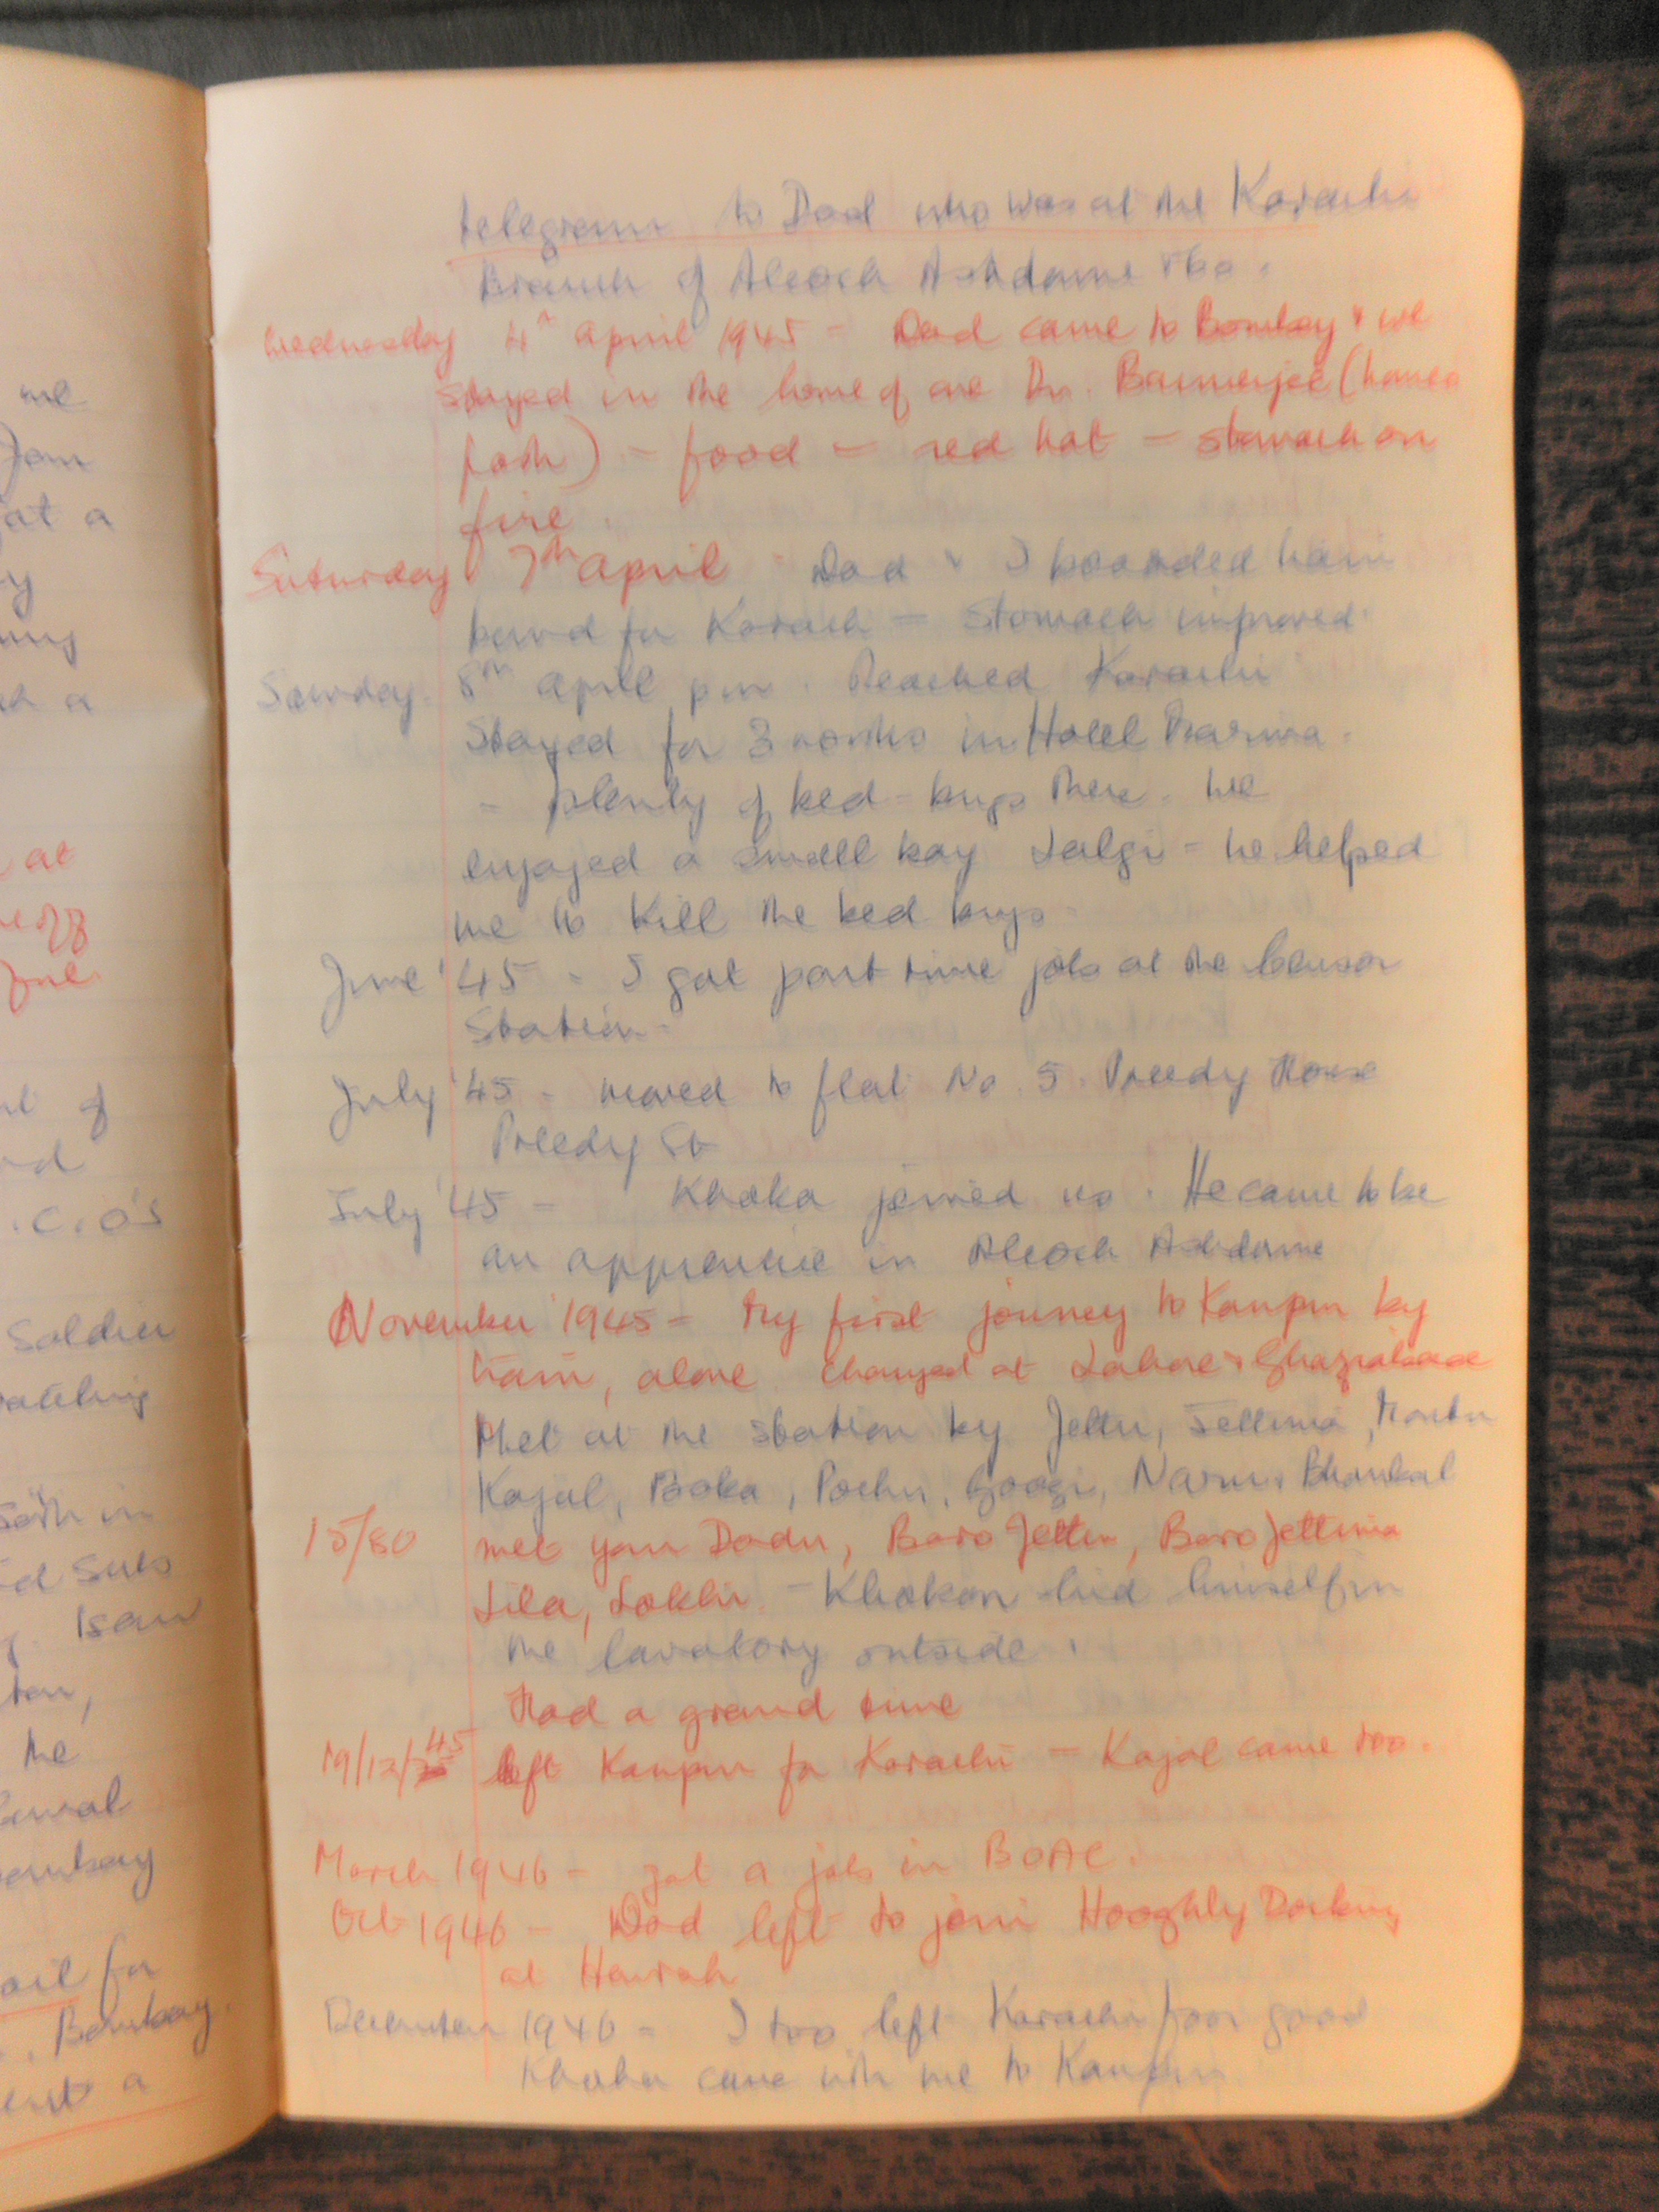 me
Jam
at a
y
at
June
of
.C.O's
Soldier
I saw
the
Bombay
for
Bombay.
a
telegram to Dad who was at the Karachi
Branch of Alcock Ashdown & Co.
Wednesday 4th April 1945 - Dad came to Bombay & we
stayed in the home of one Dr. Bannerjee (homeo
path) - food - red hot - stomach on
fire.
Saturday 7th April Dad & I boarded train
bound for Karachi - Stomach improved.
Sunday. 8th April pm. Reached Karachi
Stayed for 3 months in Hotel
- plenty of bed-bugs there. We
engaged a small boy Lalji - he helped
me to kill the bed bugs.
June '45 - I got part time job at the Censor
Station -
July '45 - moved to flat No. 5. Preedy House
Preedy St
July '45 - Khoka joined us. He came to be
an apprentice in Alcock Ashdown
November 1945 - My first journey to Kanpur by
train, alone. Changed at Lahore & Ghaziabad
Met at the station by Jettu, Jettima,
Kajal, Pochu, Googi,
15/80 met your Dadu, Baro Jettu, Baro Jettima
Lila, - Khokon hid himself in
the lavatory outside.
Had a grand time
19/12/45 left Kanpur for Karachi - Kajal came too.
March 1946 - got a job in BOAC.
Oct 1946 - Dad left to join Hooghly Docking
at Howrah
December 1946 - I too left Karachi for good
Khoka came with me to Kanpur.